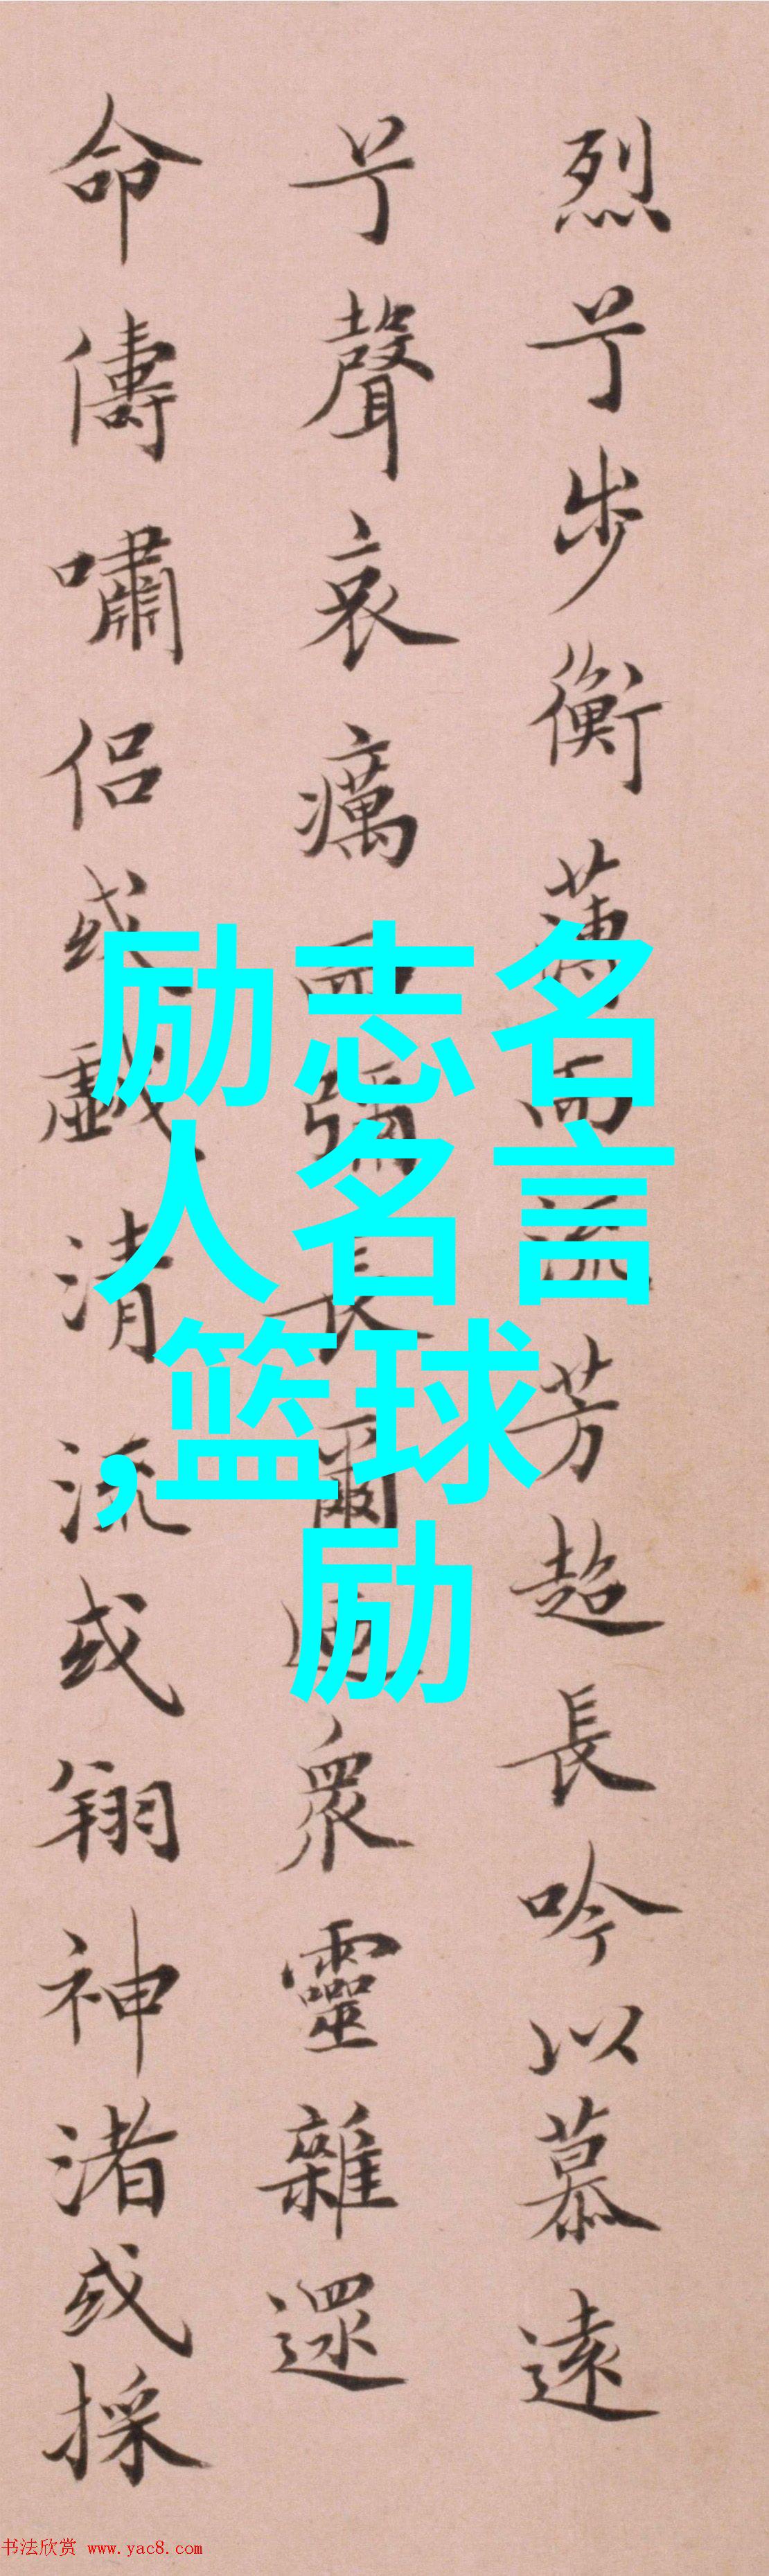 烈兮步衡薄而流芳超長吟以慕遠
兮聲哀癘而彌長爾迺衆靈雜遝
命儔嘯侶或戲清流或翔神渚或採
励志名
人名言
,篮球
励
书法欣赏 www.yac8.com